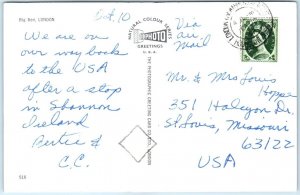 Big Ben, LONDON
Oct. 10
NATURAL COLOUR SERIES
PHOTO
GREETINGS
Via
air
Mail
We are on
our way back
to the USA
after a stop
in Shannon
Ireland
Bertie &
C.C.
THE PHOTOGRAPHIC GREETING CARD CO. LTD., LONDON
Mr. & Mrs Louis
Hopper
351 Halcyon Dr.
St Louis, Missouri
63122
USA